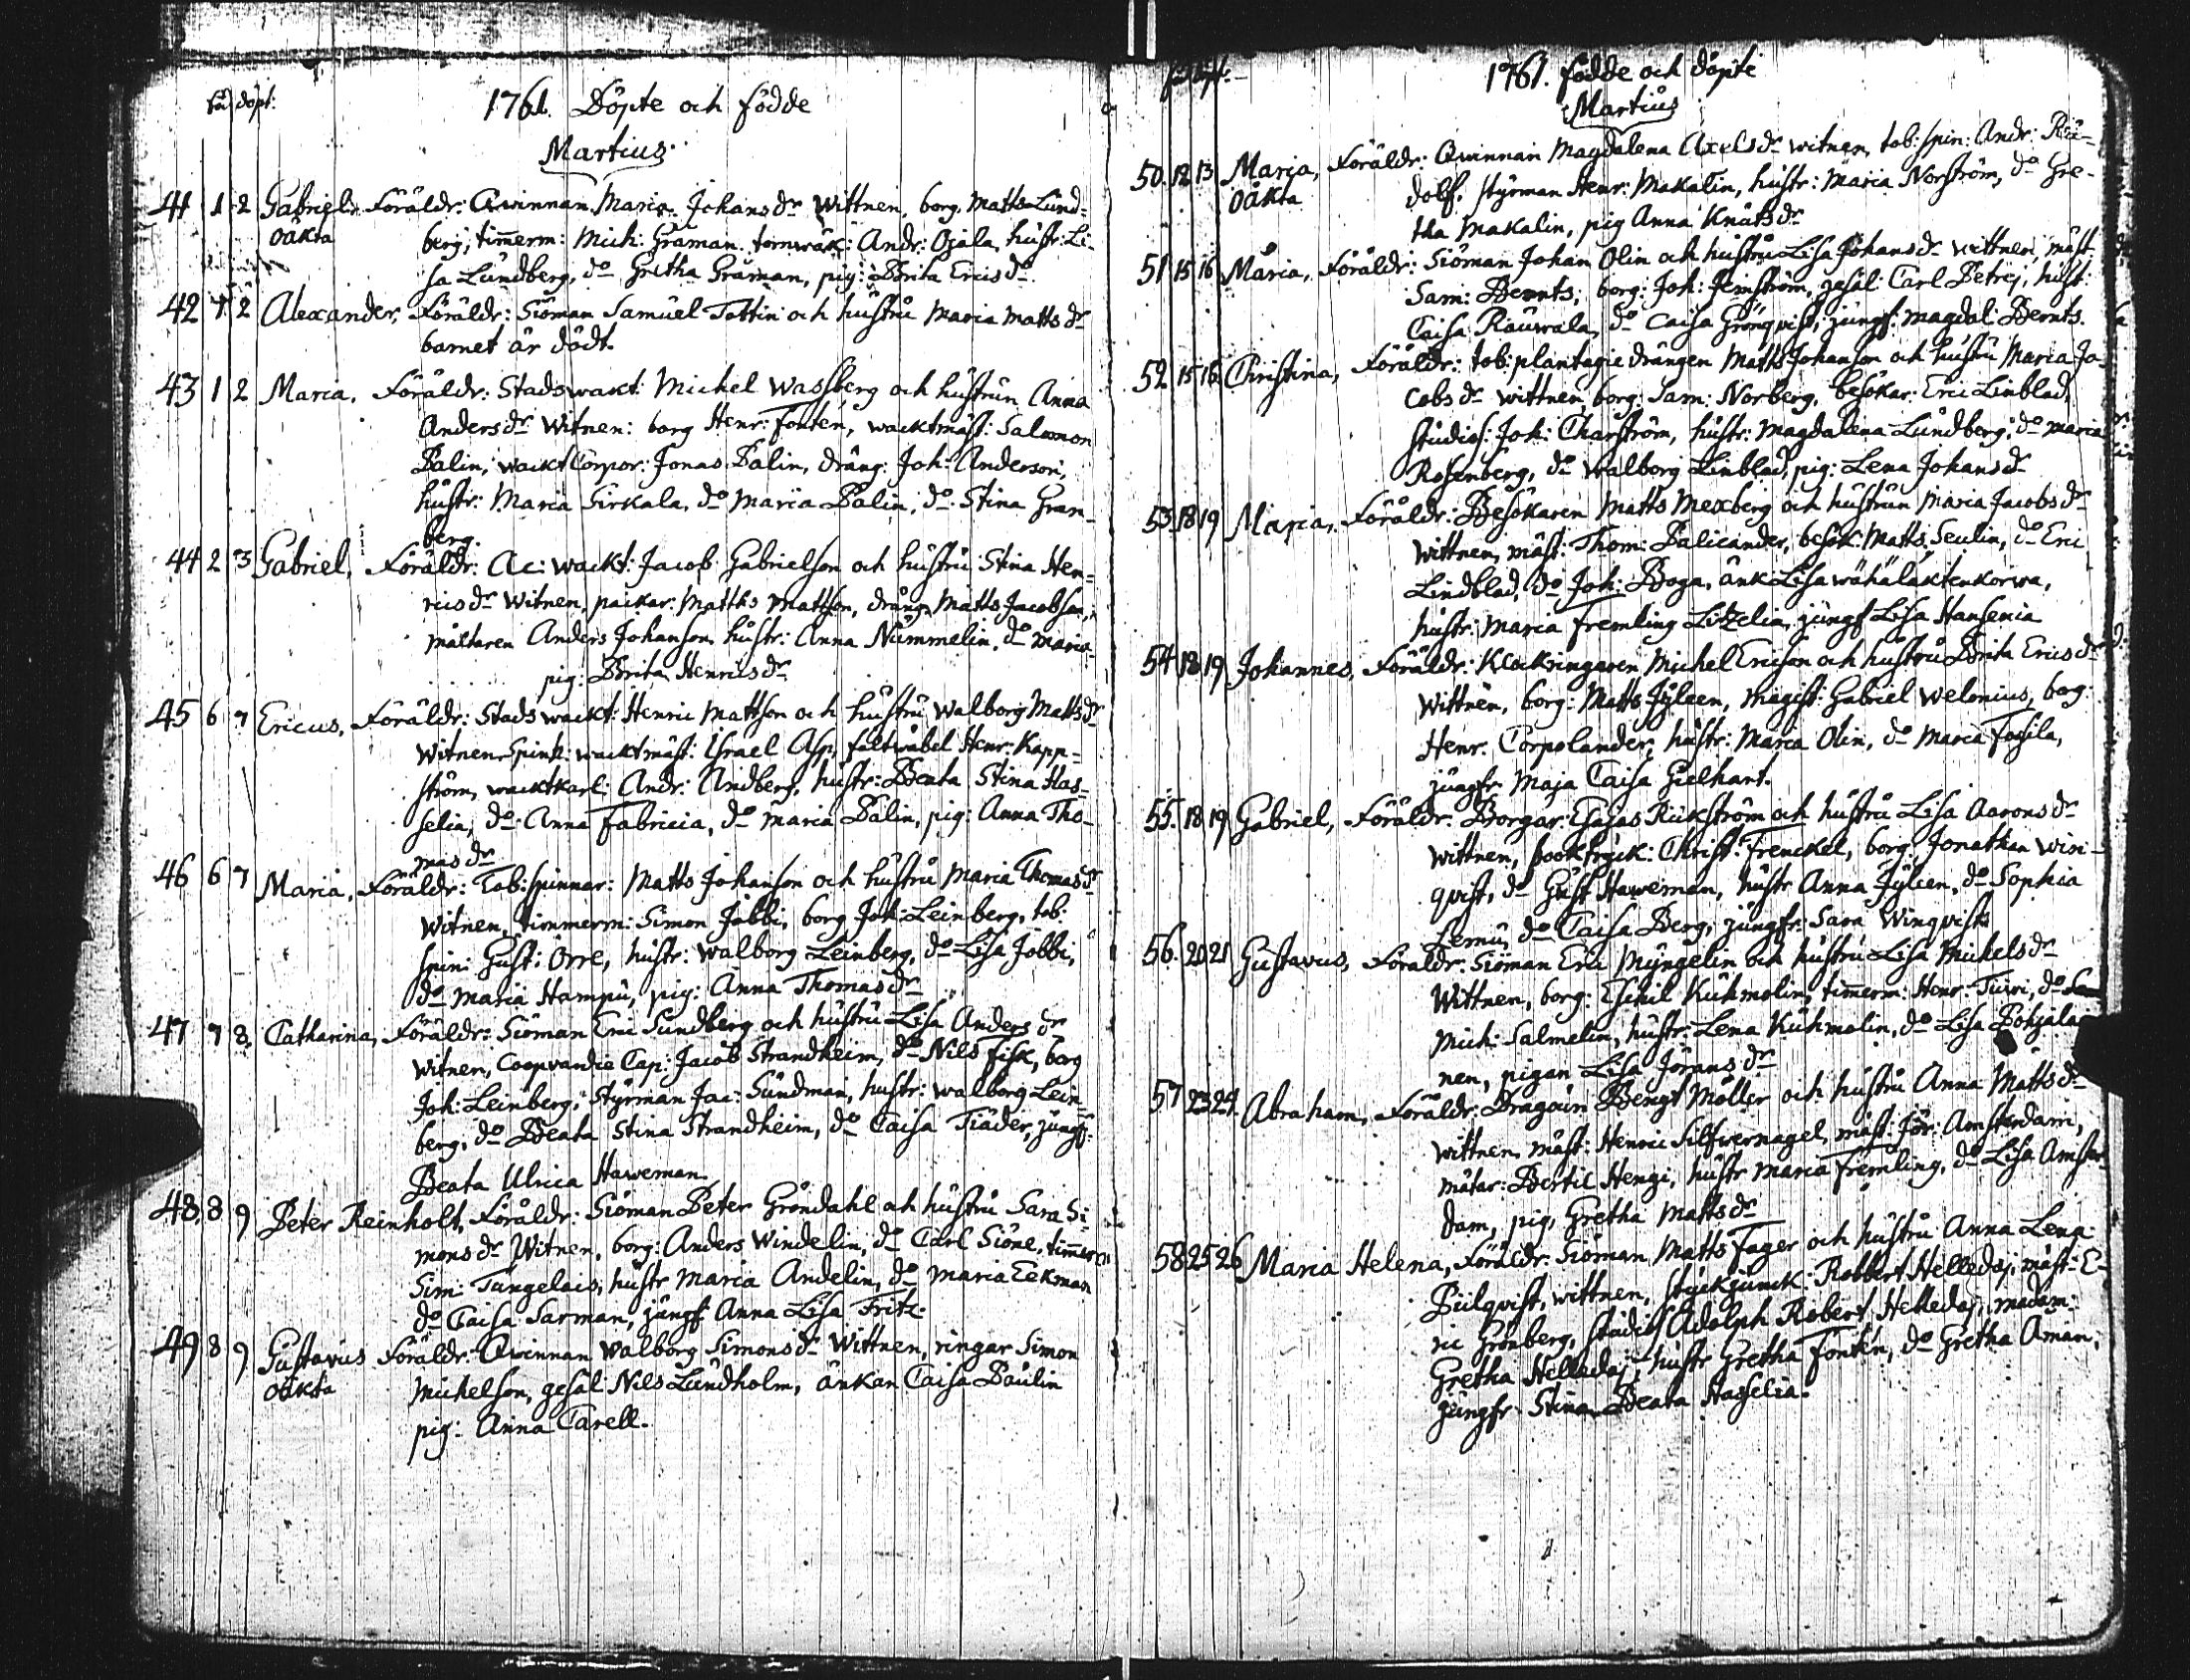 föd döpt:
1761. Döpte och födde
Martius
41 1 2 Gabriel. Föräldr: Qwinnan Maria Johansdr Wittnen, borg. Matts Lund-
oäkta berg, timerm: Mich: Gråman. tornwäk: Andr: Ojala, hustr: Li-
sa Lundberg, do Gretha Gråman, pig: Brita Ericsdr
42 1 2 Alexander, Föräldr: Siöman Samuel Tottin och hustru Maria Mattsdr
barnet är dödt.
43 1 2 Maria. Föräldr: Stadswakt: Michel Wassberg och hustrun Anna
Andersdr Witnen: borg Henr: Fontén, wacktmäst: Salomon
Palin, wackt Corpor: Jonas Palin, dräng: Joh: Anderson,
hustr: Maria Sirkala, do Maria Palin, do Stina Gran-
berg.
44 2 3 Gabriel, Föräldr: Ac: wackt: Jacob Gabrielson och hustru Stina Hen-
ricsdr Witnen, packar: Matths Mattson, dräng Matts Jacobson,
mältaren Anders Johanson, hustr: Anna Nummelin, do Maria
pig: Brita Henricsdr
45 6 7 Ericus, Föräldr: Stads wackt: Henric Mattson och hustru Walborg Mattsdr
Witnen wacktmäst: Israel Asp, fältwäbel Henr: Kapp-
ström, wacktkarl: Andr: Andberg, hustr: Beata Stina Has-
selia, do Anna Fabricia, do Maria Palin, pig: Anna Tho-
masdr
46 6 7 Maria, Föräldr: Tob: spinnar: Matts Johanson och hustru Maria Thomasdr
Witnen, timmerm: Simon Jobbi, borg Joh: Leinberg, tob:
spin: Gust: Orre, hustr: Walborg Leinberg, do Lisa Jobbi,
do Maria Hampu, pig: Anna Thomasdr
47 7 8 Catharina, Föräldr: Siöman Eric Sundberg och hustru Lisa Andersdr
Witnen, Coopvardie Cap: Jacob Strandheim, do Nils Fisk, borg
Joh: Leinberg, Styrman Jac: Sundman, hustr: Walborg Lein-
berg, do Beata Stina Strandheim, do Caisa Tiäder, jungf:
Beata Ulrica Haweman.
48. 8 9 Peter Reinholt, Föräldr: Siöman Peter Gröndahl och hustru Sara Si-
monsdr Witnen, borg: Anders Windelin, do Carl Siöne, timerm
Sim: Tungelais, hustr Maria Andelin, do Maria Eekman
do Caisa Sarman, jungf Anna Lisa Fritz.
49 8 9 Gustavus Föräldr: Qwinnan Walborg Simonsdr Wittnen, ringar Simon
oäkta Michelson, gesäl: Nils Lundholm, änkan Caisa Paulin
pig: Anna Carell.
1761. födde och döpte
Martius
50. 12 13 Maria, Föräldr: Qwinnan Magdalena Axelsdr witnen, tob: spin: Andr: Ru-
oäkta dolf. styrman Henr: Makalin, hustr: Maria Norström, do Gre-
tha Makalin, pig Anna Knutsdr
51 15 16 Maria, Föräldr: Siöman Johan Olin och hustru Lisa Johansdr wittnen, mäst:
Sam: Bernts, borg: Joh: gesäl Carl Petrej, hust:
Caisa Rauwala, do Caisa Grönqvist, jungf: Magdal: Bernts.
52 15 16 Christina, Föräldr: tob: plantagie drängen Matts Johanson och hustru Maria Ja-
cobsdr wittnen borg: Sam: Norberg, besökar: Eric Linblad,
studios: Joh: Charström, hustr: Magdalena Lundberg, do Maria
Rosenberg, do Walborg Linblad, pig: Lena Johansdr
53. 18 19 Maria, Föräldr: Besökaren Matts Mexberg och hustrun Maria Jacobsdr
Wittnen, mäst: Thom: Palicander, besök: Matts Seulin, do Eric
Lindblad, do Joh: Boga, änk: Lisa
hustr: Maria Fremling Litzelia, jungf Lisa Hansenia
54 18 19 Johannes, Föräldr: Klockringaren Michel Ericson och hustru Brita Ericsdr
Wittnen, borg: Matts Jyleen, Magist: Gabriel Welonius, borg:
Henr. Corpolander, hustr: Maria Olin, do Maria
jungfr Maja Caisa Gielhart.
55. 18 19 Gabriel, Föräldr: Borgar: Esajas Rükström och hustru Lisa Aaronsdr
Wittnen, booktryck: Christ: Frenckel, borg Jonathan Win-
qvist, do Gust Haweman, hustr Anna Jyleen, do Sophia
Lemu, do Caisa Berg, jungfr: Sara Winqvist
56. 20 21 Gustavus, Föräldr: Siöman Eric Myngelin och hustru Lisa Michelsdr
Wittnen, borg: Eschil Kuhmolin, timerm: Henr: Tuori, do
Mich: Salmelin, hustr: Lena Kuhmolin, do Lisa Pohjalai
nen, pigan Lisa Jöransdr
57 23 24. Abraham, Föräldr: Dragoun Bengt Möller och hustru Anna Mattsdr
Wittnen, mäst: Henric Silfwernagel, mäst: Jör: Amsterdam,
mätar: Bertil Hengi, hustr Maria Fremling, do Lisa Amster-
dam, pig, Gretha Mattsdr
58 25 26 Maria Helena, Föräldr: Siöman Matts Fager och hustru Anna Lena
Pülqvist, wittnen, styckjunck: Robbert Helleday, mäst: E-
ric Grönberg, studios Adolph Robert Helleday, madam:
Gretha Helleday, hustr Gretha Fontén, do Gretha Aman,
jungfr Stina Beata Hasselia.